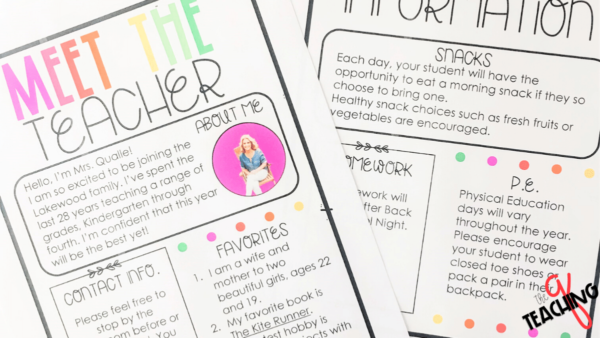 MEET THE
TEACHER
ABOUT ME
Hello, I'm Mrs. Qualie!
I am so excited to be joining the
Lakewood family. I've spent the
last 28 years teaching a range of
grades, Kindergarten through
fourth. I'm confident that this year
will be the best yet!
CONTACT INFO.
Please feel free to
stop by the
before or
You
FAVORITES
1. I am a wife and
mother to two
beautiful girls, ages 22
and 19.
2. My favorite book is
The Kite Runner.
hobby is
with
INFORMATION
SNACKS
Each day, your student will have the
opportunity to eat a morning snack if they so
choose to bring one.
Healthy snack choices such as fresh fruits or
vegetables are encouraged.
HOMEWORK
will
Back
Night.
P.E.
Physical Education
days will vary
throughout the year.
Please encourage
your student to wear
closed toe shoes
pack a pair in their
backpack.
the
TEACHING